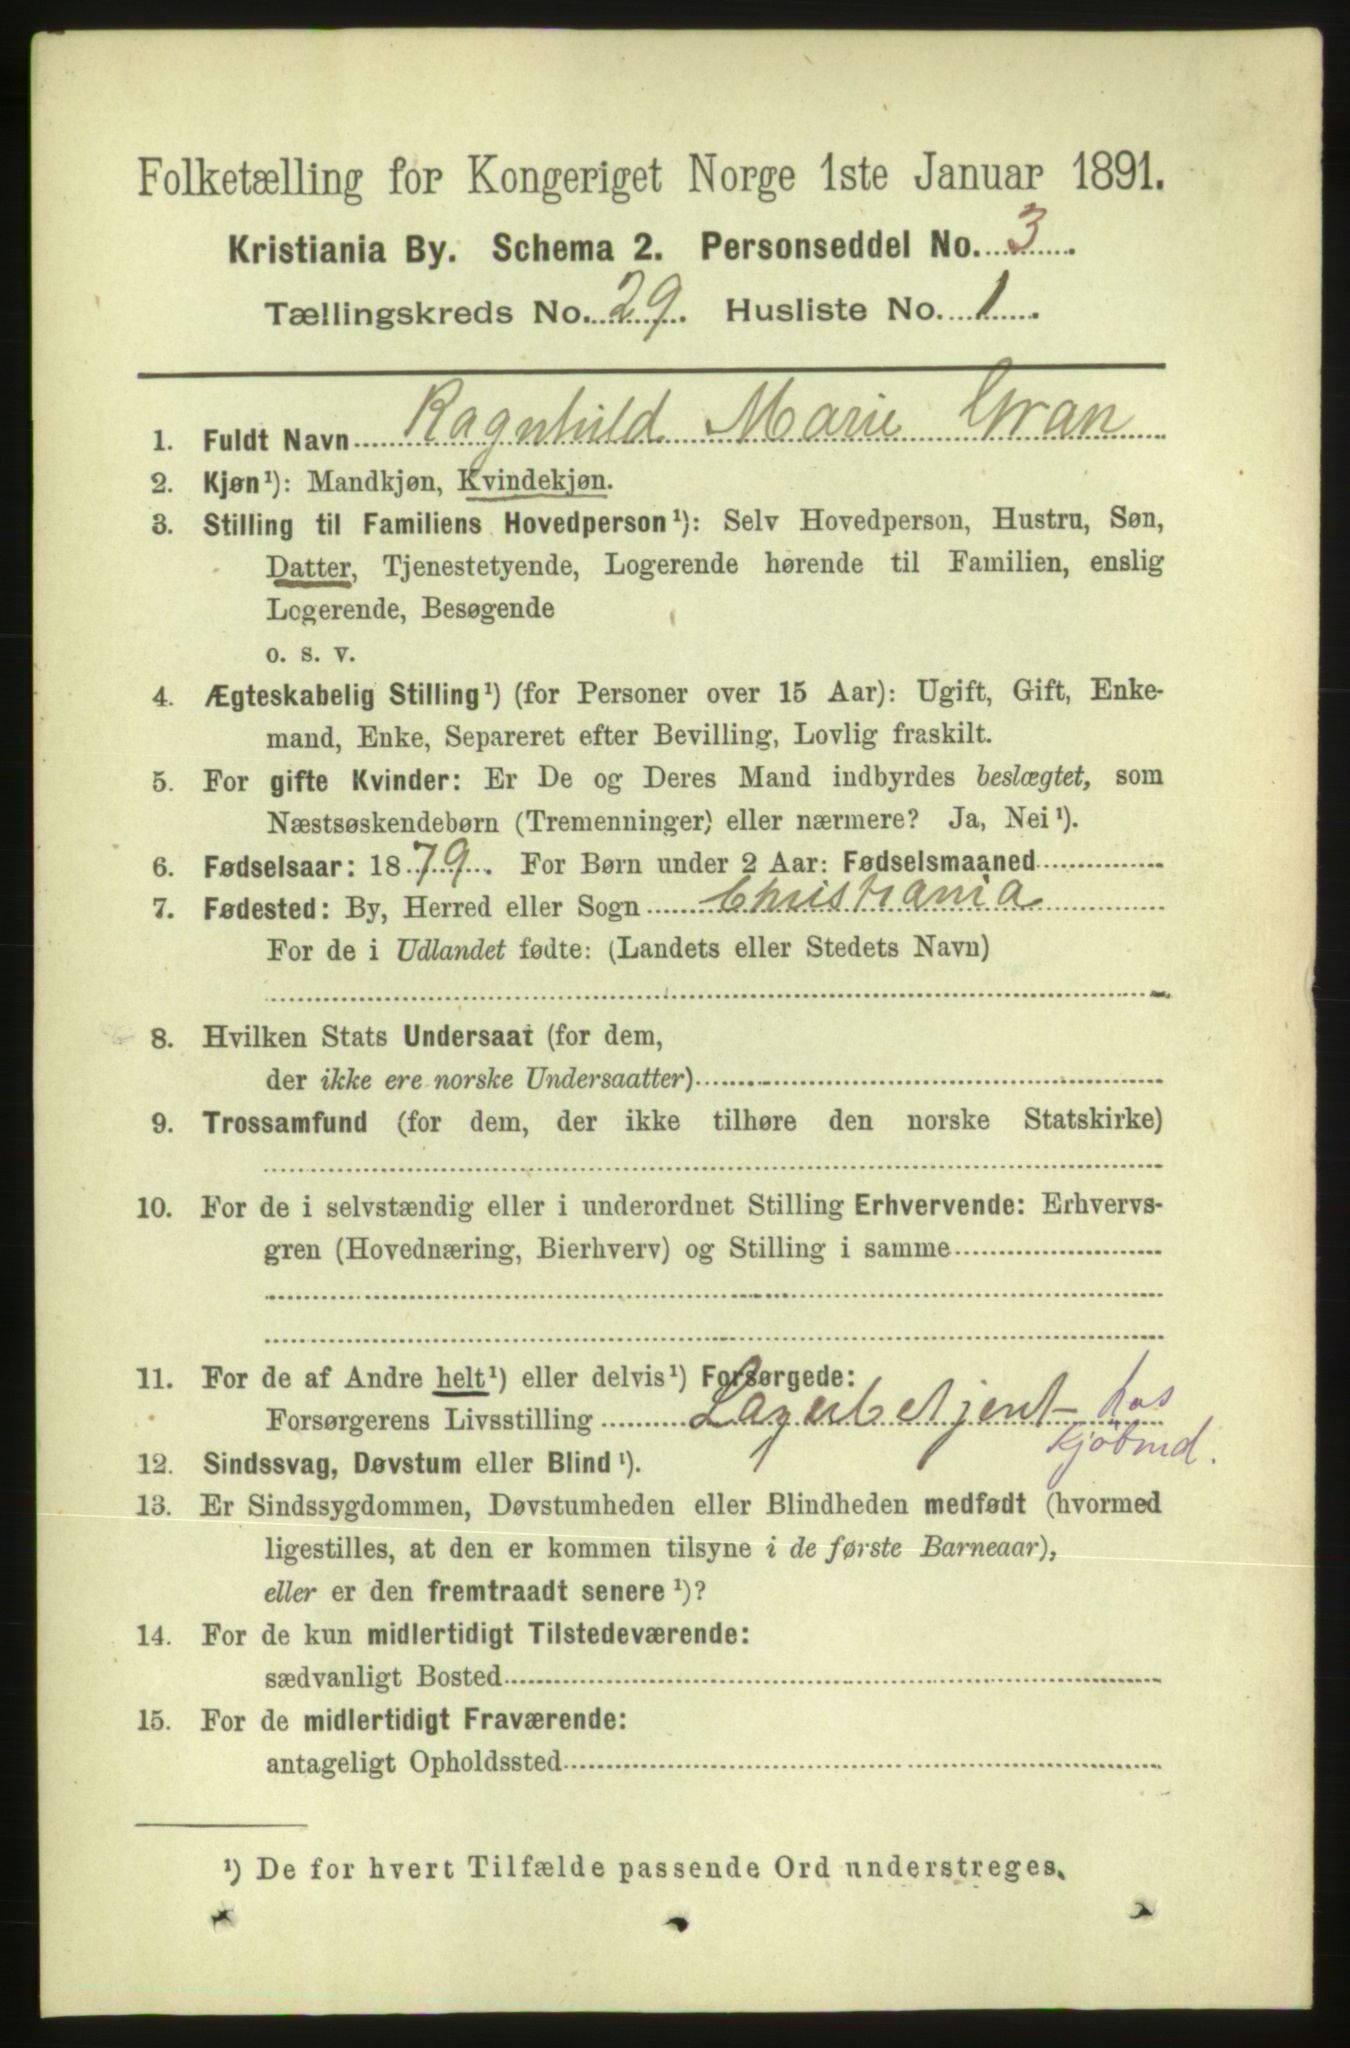 Folketælling for Kongeriget Norge 1ste Januar 1891.
Kristiania By. Schema 2. Personseddel No. 3.
Tællingskreds No. 29. Husliste No. 1.
1. Fuldt Navn Ragnhild Marie Gran
2. Kjøn¹): Mandkjøn, Kvindekjøn.
3. Stilling til Familiens Hovedperson¹): Selv Hovedperson, Hustru, Søn,
Datter, Tjenestetyende, Logerende hørende til Familien, enslig
Logerende, Besøgende
o. s. v.
4. Ægteskabelig Stilling¹) (for Personer over 15 Aar): Ugift, Gift, Enke-
mand, Enke, Separeret efter Bevilling, Lovlig fraskilt.
5. For gifte Kvinder: Er De og Deres Mand indbyrdes beslægtet, som
Næstsøskendebørn (Tremenninger) eller nærmere? Ja, Nei¹).
6. Fødselsaar: 1879. For Børn under 2 Aar: Fødselsmaaned
7. Fødested: By, Herred eller Sogn Christiania
For de i Udlandet fødte: (Landets eller Stedets Navn)
8. Hvilken Stats Undersaat (for dem,
der ikke ere norske Undersaatter)
9. Trossamfund (for dem, der ikke tilhøre den norske Statskirke)
10. For de i selvstændig eller i underordnet Stilling Erhvervende: Erhvervs-
gren (Hovednæring, Bierhverv) og Stilling i samme
11. For de af Andre helt¹) eller delvis¹) Forsørgede:
Forsørgerens Livsstilling Lagerbetjent hos
Kjøbmd.
12. Sindssvag, Døvstum eller Blind¹).
13. Er Sindssygdommen, Døvstumheden eller Blindheden medfødt (hvormed
ligestilles, at den er kommen tilsyne i de første Barneaar),
eller er den fremtraadt senere¹)?
14. For de kun midlertidigt Tilstedeværende:
sædvanligt Bosted
15. For de midlertidigt Fraværende:
antageligt Opholdssted
¹) De for hvert Tilfælde passende Ord understreges.